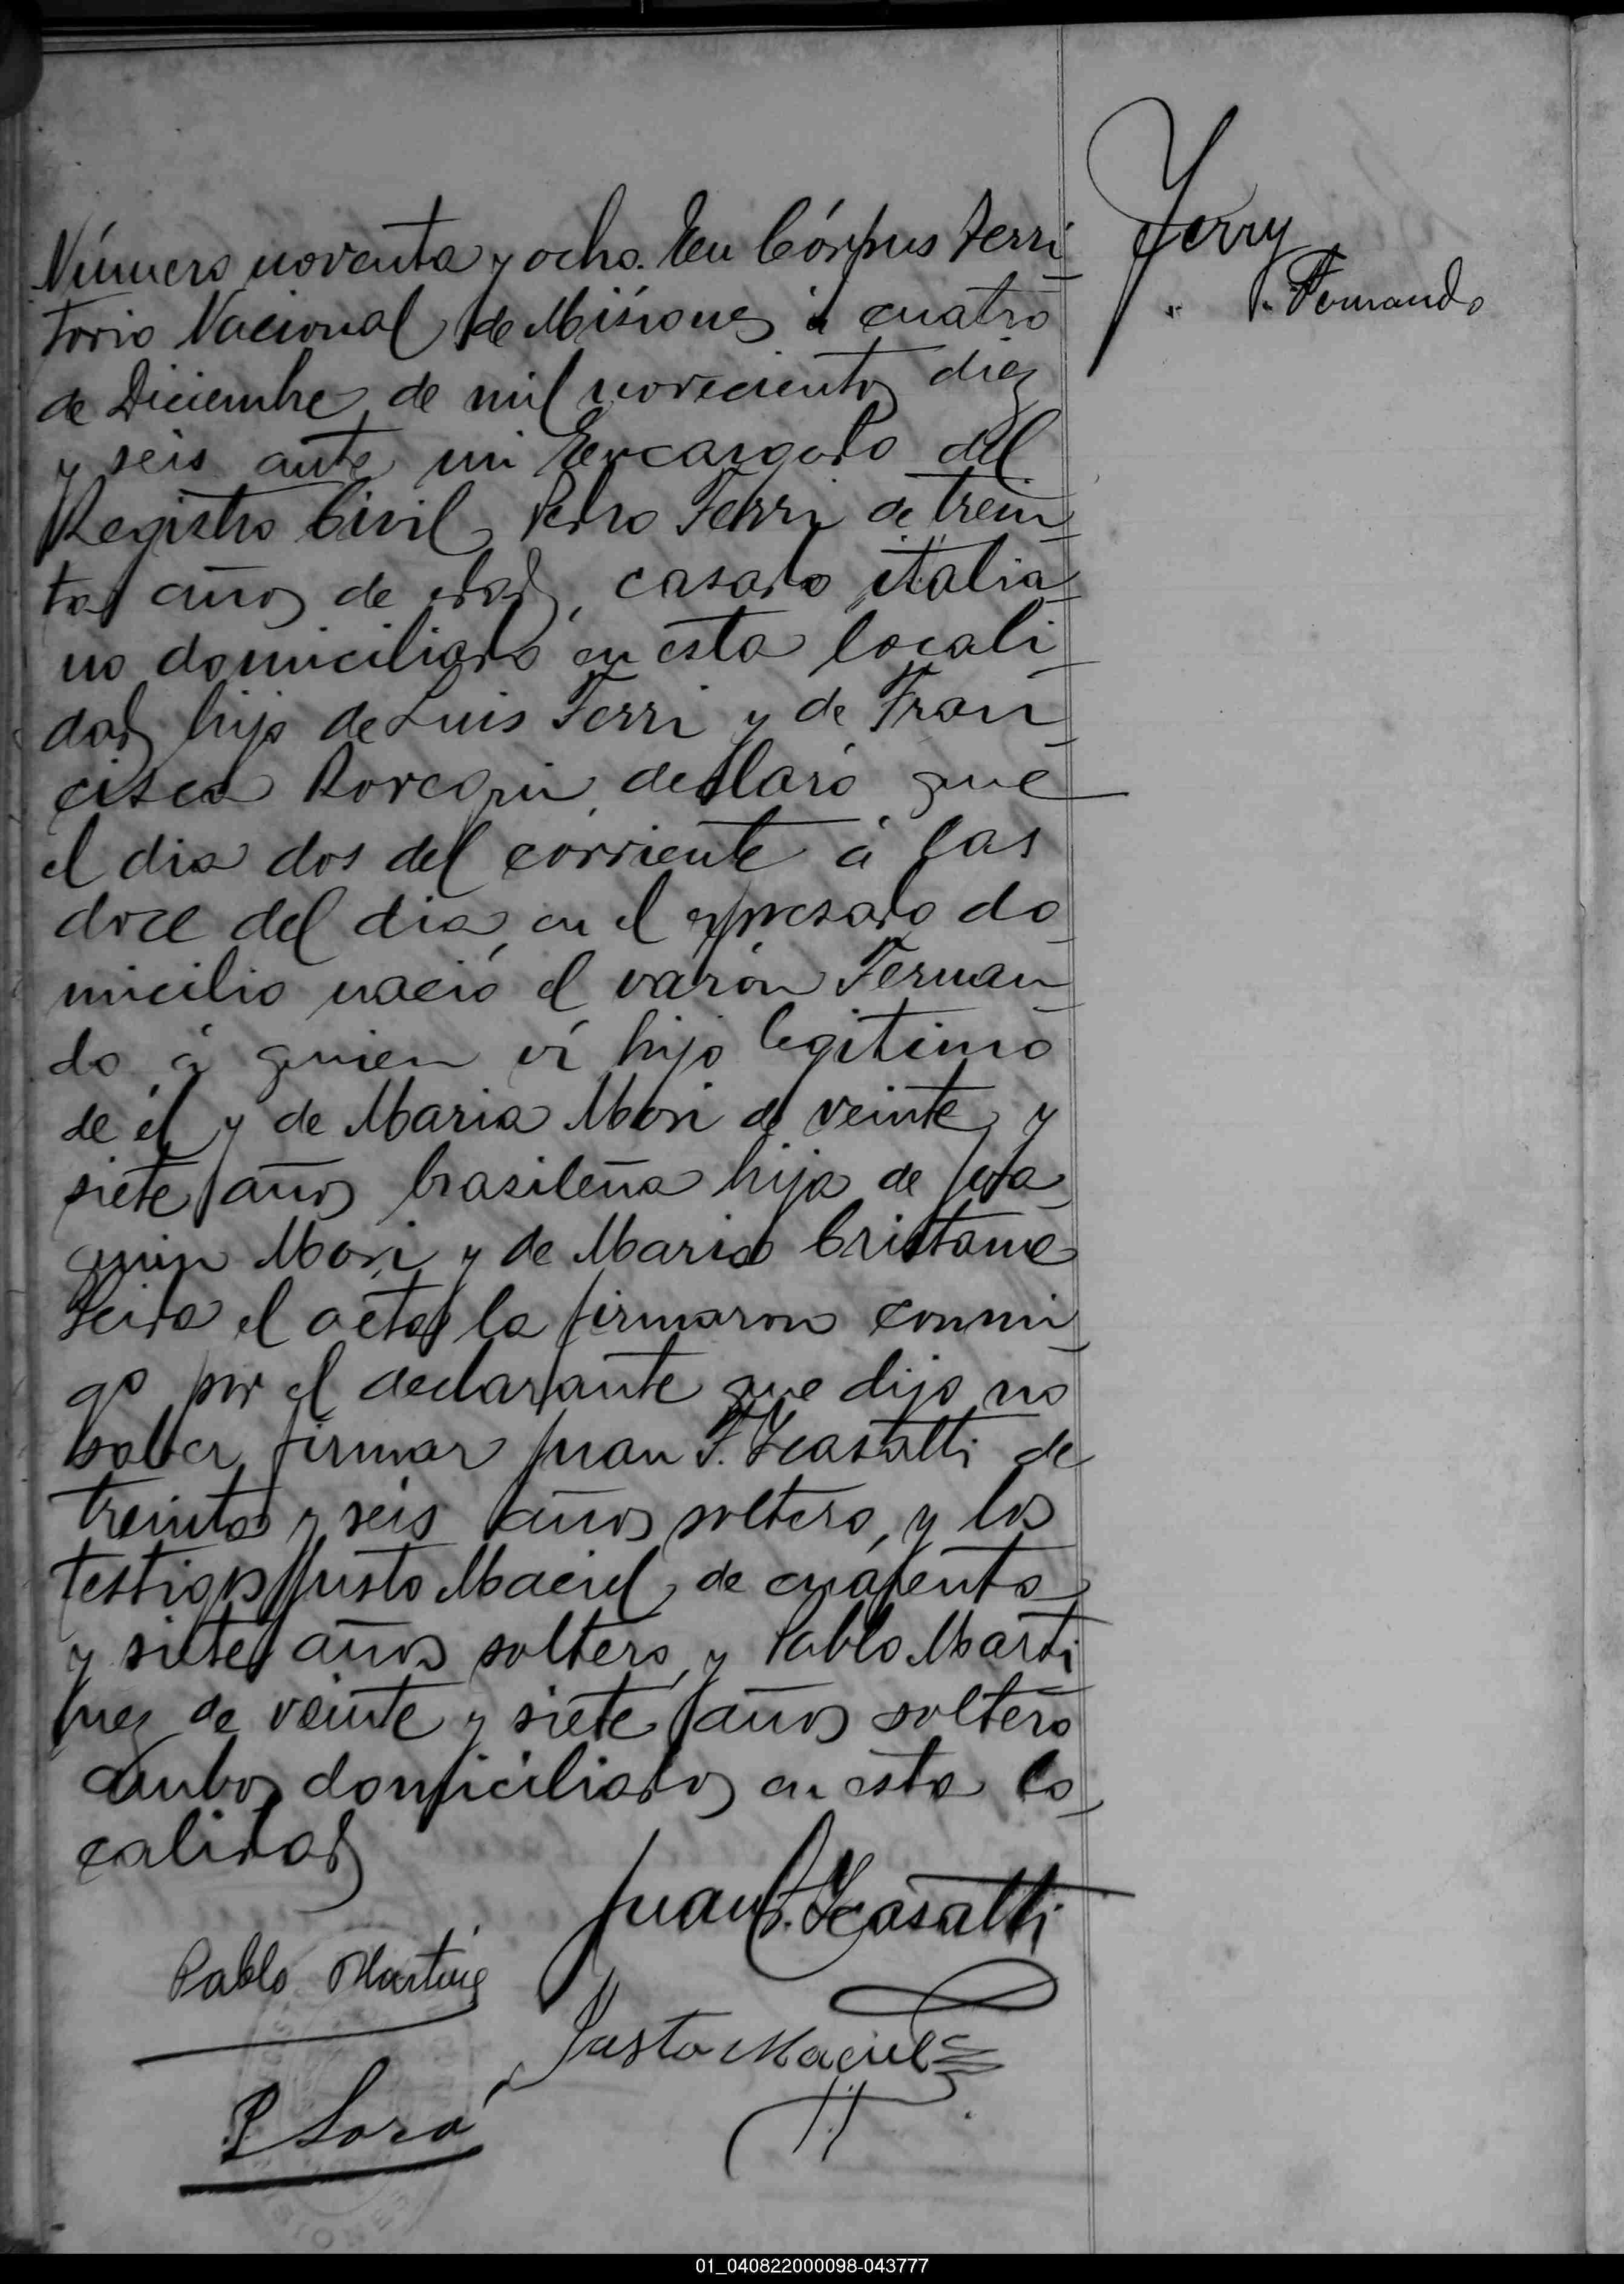 Número noventa y ocho. En Córpus Terri
torio Nacional de Misiones á cuatro
de Diciembre de mil novecientos diez
y seis ante mi Encargado del
Registro Civil, Pedro Ferri de trein
ta años de edad, casado, italia
no domiciliado en esta locali
dad hijo de Luis Ferri y de Fran
cisca declaró que
el dia dos del corriente á las
doce del dia en el expresado do
micilio nació el varón Fernan
do á quien ví hijo legitimo
de él y de Maria Mori de veinte y
siete años brasileña hija de Joa
quin Mori y de Maria
Leida el acta la firmaron conmi
go por el declarante que dijo no
saber firmar Juan F. de
treinta y seis años soltero, y los
testigos Justo Maciel, de cuarenta
y siete años soltero, y Pablo Marti
nez de veinte y siete años soltero
ambos domiciliados en esta lo
calidad
Juan F.
Pablo Martinez
Justo Maciel
P.
Ferry
" " Fernando
01_040822000098-043777